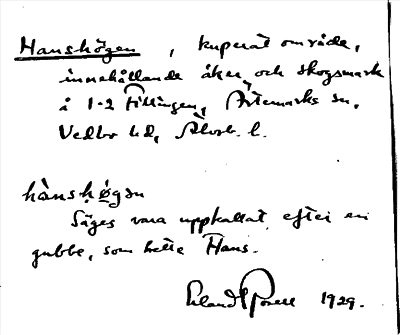 Hanshögen, kuperat område,
innehållande åker och skogsmark
å 1-2 Fillingen, Ärtemarks sn,
Vedbo hd, Älvsb. l.
hànshø̀gən
Säges vara uppkallat efter en
gubbe, som hette Hans.
Erland Rosell 1929.